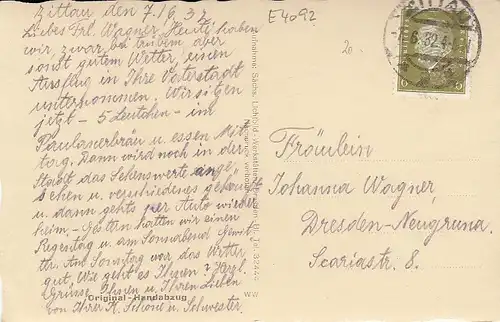 Zittau den 7./6.32
Liebes Frl. Wagner, Heute haben
wir zwar bei trübem aber
sonst gutem Wetter, einen
Ausflug in Ihre Vaterstadt
unternommen. Wir sitzen
jetzt – 5 Leutchen – im
Paulanerbräu u. essen Mit-
tag. Dann wird noch in der
Stadt das Sehenswerte ange-
sehen u. verschiedenes
u. dann gehts per Auto wieder
heim. – Gestern hatten wir einen
Regentag u. am Sonnabend Gewit-
ter. Am Sonntag war das Wetter
gut. Wie geht es Ihnen? Herzl.
Grüsse Ihnen u. Ihren Lieben
von Ihrer A. u. Schwester.
Original-Handabzug
E4092
20
ZITTAU
6.32.4
6
Johanne Sachs,
Nachdruck verboten
Fräulein
Johanna Wagner,
Dresden-Neugruna.
Scariastr. 8.